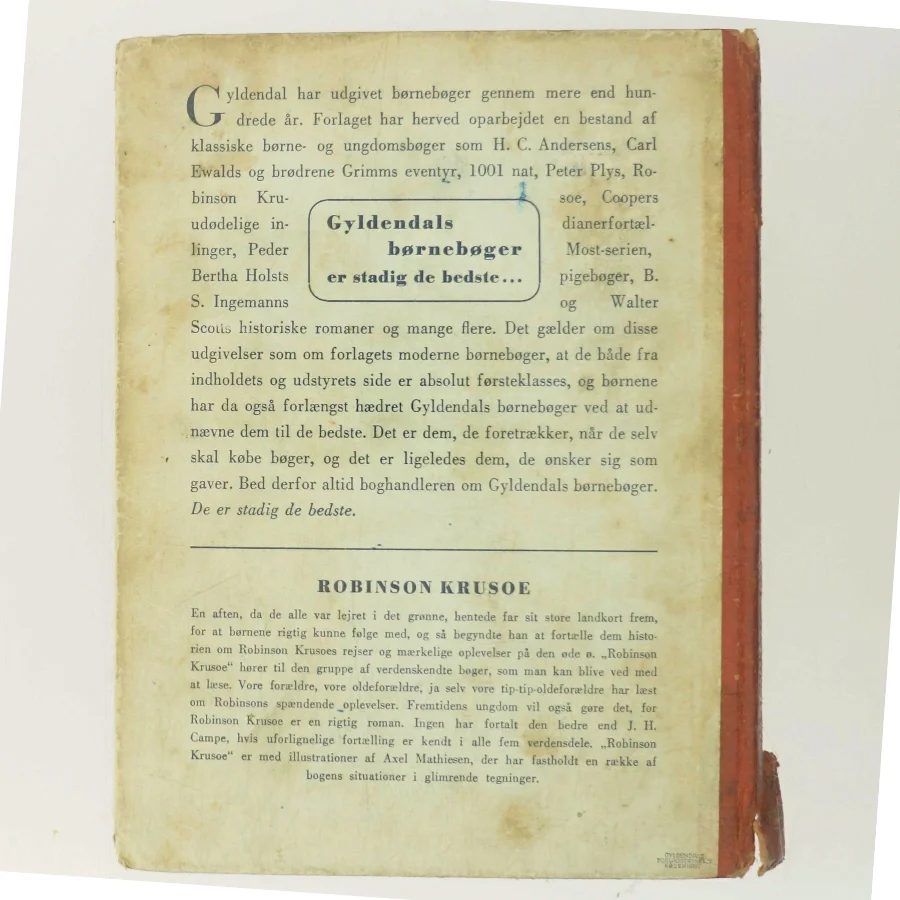 Gyldendal har udgivet børnebøger gennem mere end hun-
drede år. Forlaget har herved oparbejdet en bestand af
klassiske børne- og ungdomsbøger som H. C. Andersens, Carl
Ewalds og brødrene Grimms eventyr, 1001 nat, Peter Plys, Ro-
binson Kru- soe, Coopers
udødelige in- dianerfortæl-
linger, Peder Most-serien,
Bertha Holsts pigebøger, B.
S. Ingemanns og Walter
Gyldendals
børnebøger
er stadig de bedste...
Scotts historiske romaner og mange flere. Det gælder om disse
udgivelser som om forlagets moderne børnebøger, at de både fra
indholdets og udstyrets side er absolut førsteklasses, og børnene
har da også forlængst hædret Gyldendals børnebøger ved at ud-
nævne dem til de bedste. Det er dem, de foretrækker, når de selv
skal købe bøger, og det er ligeledes dem, de ønsker sig som
gaver. Bed derfor altid boghandleren om Gyldendals børnebøger.
De er stadig de bedste.
ROBINSON KRUSOE
En aften, da de alle var lejret i det grønne, hentede far sit store landkort frem,
for at børnene rigtig kunne følge med, og så begyndte han at fortælle dem histo-
rien om Robinson Krusoes rejser og mærkelige oplevelser på den øde ø. „Robinson
Krusoe“ hører til den gruppe af verdenskendte bøger, som man kan blive ved med
at læse. Vore forældre, vore oldeforældre, ja selv vore tip-tip-oldeforældre har læst
om Robinsons spændende oplevelser. Fremtidens ungdom vil også gøre det, for
Robinson Krusoe er en rigtig roman. Ingen har fortalt den bedre end J. H.
Campe, hvis uforlignelige fortælling er kendt i alle fem verdensdele. „Robinson
Krusoe“ er med illustrationer af Axel Mathiesen, der har fastholdt en række af
bogens situationer i glimrende tegninger.